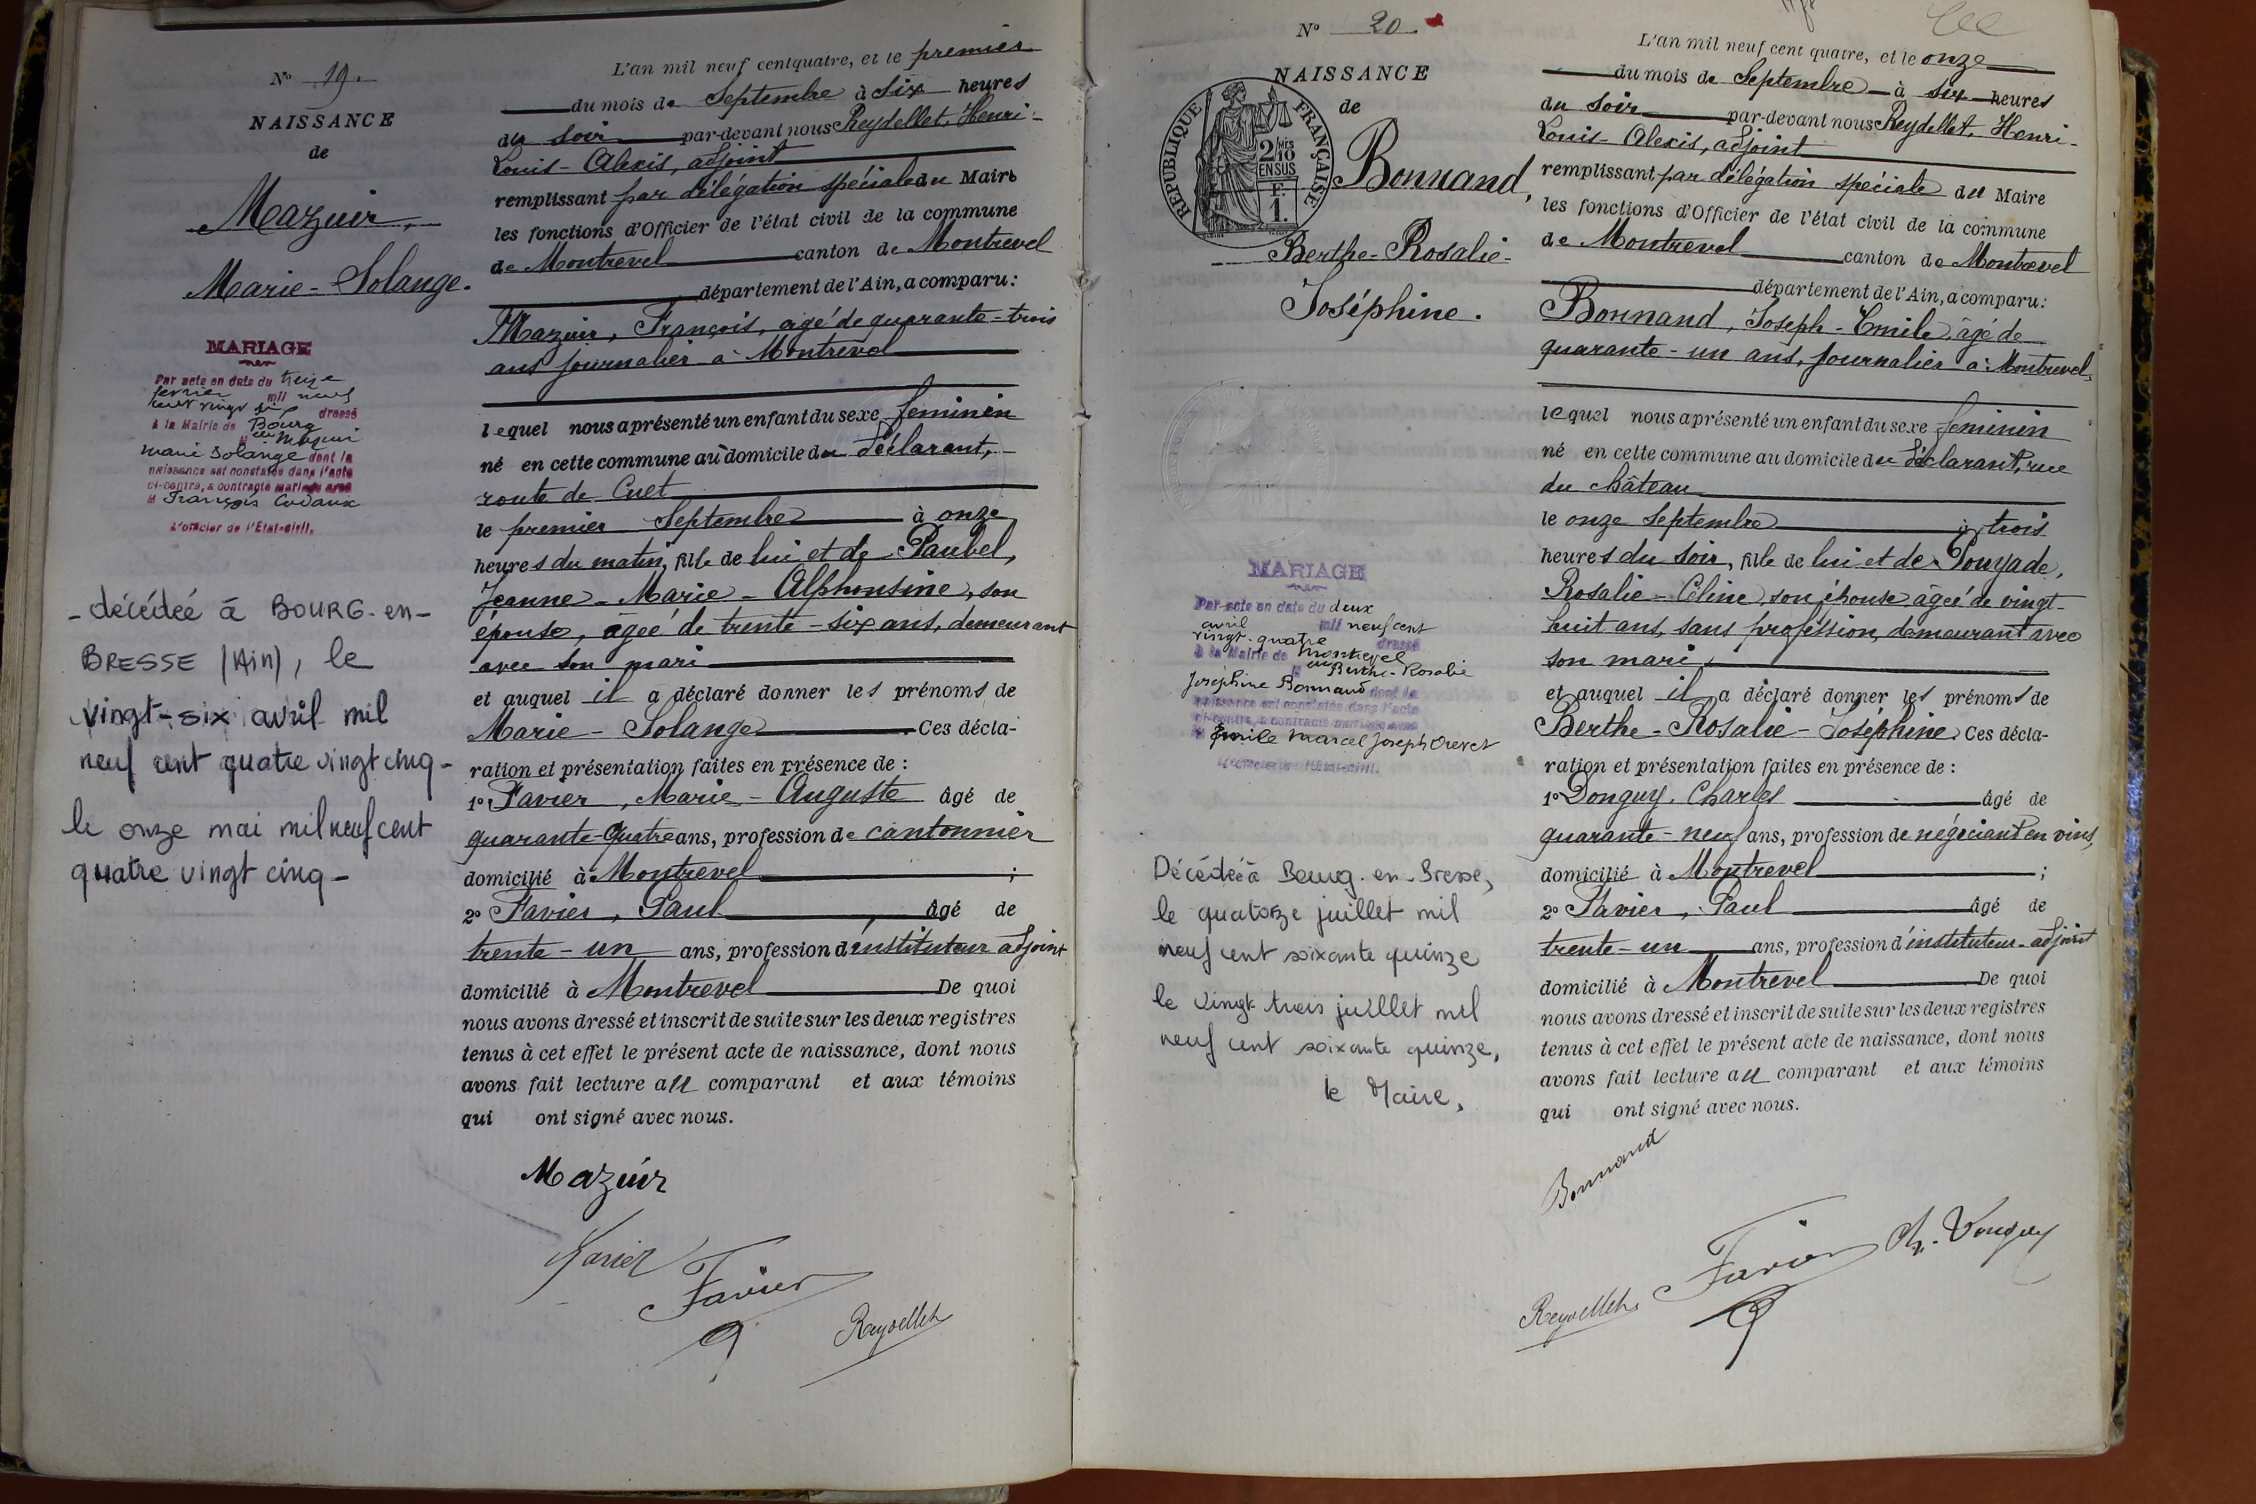 N° 19.
NAISSANCE
de
Mazuir,
Marie-Solange.
MARIAGE
Par acte en date du treize
février mil neuf
cent vingt six dressé
à la Mairie de Bourg
Mlle Mazuir
Marie Solange dont la
naissance est constatée dans l'acte
ci-contre, a contracté mariage avec
M François
L'officier de l'État-civil,
- décédée à BOURG-en-
BRESSE (Ain), le
vingt-six avril mil
neuf cent quatre vingt cinq -
le onze mai mil neuf cent
quatre vingt cinq -
L'an mil neuf cent quatre, et le premier
du mois de Septembre à six heures
du soir par-devant nous Reydellet, Henri-
Louis-Alexis, adjoint
remplissant par délégation spéciale du Maire
les fonctions d'Officier de l'état civil de la commune
de Montrevel canton de Montrevel
département de l'Ain, a comparu:
Mazuir, François, agé de quarante-trois
ans journalier à Montrevel
lequel nous a présenté un enfant du sexe feminin
né en cette commune au domicile du déclarant,
route de Cuet
le premier Septembre à onze
heures du matin, fille de lui et de Paubel,
Jeanne-Marie-Alphonsine, son
épouse, agée de trente-six ans, demeurant
avec son mari
et auquel il a déclaré donner les prénoms de
Marie-Solange Ces décla-
ration et présentation faites en présence de :
1° Favier, Marie-Auguste âgé de
quarante-quatre ans, profession de cantonnier
domicilié à Montrevel ;
2° Favier, Paul, âgé de
trente-un ans, profession d'instituteur adjoint
domicilié à Montrevel De quoi
nous avons dressé et inscrit de suite sur les deux registres
tenus à cet effet le présent acte de naissance, dont nous
avons fait lecture au comparant et aux témoins
qui ont signé avec nous.
Mazuir
Favier
Favier
Reydellet
N° 20
NAISSANCE
de
RÉPUBLIQUE FRANÇAISE
2/10
EN SUS
F.
1.
Bonnand,
Berthe-Rosalie-
Joséphine.
MARIAGE
Par acte en date du deux
avril mil neuf cent
vingt-quatre dressé
à la Mairie de Montrevel
Mlle Berthe-Rosalie
Joséphine Bonnand dont la
naissance est constatée dans l'acte
ci-contre, a contracté mariage avec
M Emile Marcel Joseph
L'officier de l'État-civil.
Décédée à Bourg-en-Bresse,
le quatorze juillet mil
neuf cent soixante quinze
le vingt trois juillet mil
neuf cent soixante quinze,
le Maire,
L'an mil neuf cent quatre, et le onze
du mois de Septembre à six heures
du soir par-devant nous Reydellet, Henri-
Louis-Alexis, adjoint
remplissant par délégation spéciale du Maire
les fonctions d'Officier de l'état civil de la commune
de Montrevel canton de Montrevel
département de l'Ain, a comparu:
Bonnand, Joseph-Emile, âgé de
quarante-un ans, journalier à Montrevel,
lequel nous a présenté un enfant du sexe feminin
né en cette commune au domicile du déclarant, rue
du château
le onze Septembre à trois
heures du soir, fille de lui et de Pouyade,
Rosalie-Céline, son épouse âgée de vingt-
huit ans, sans profession, demeurant avec
son mari,
et auquel il a déclaré donner les prénoms de
Berthe-Rosalie-Joséphine. Ces décla-
ration et présentation faites en présence de :
1° Donguy, Charles âgé de
quarante-neuf ans, profession de négociant en vins,
domicilié à Montrevel ;
2° Favier, Paul âgé de
trente-un ans, profession d'instituteur-adjoint
domicilié à Montrevel De quoi
nous avons dressé et inscrit de suite sur les deux registres
tenus à cet effet le présent acte de naissance, dont nous
avons fait lecture au comparant et aux témoins
qui ont signé avec nous.
Bonnand
Ch. Donguy
Favier
Reydellet